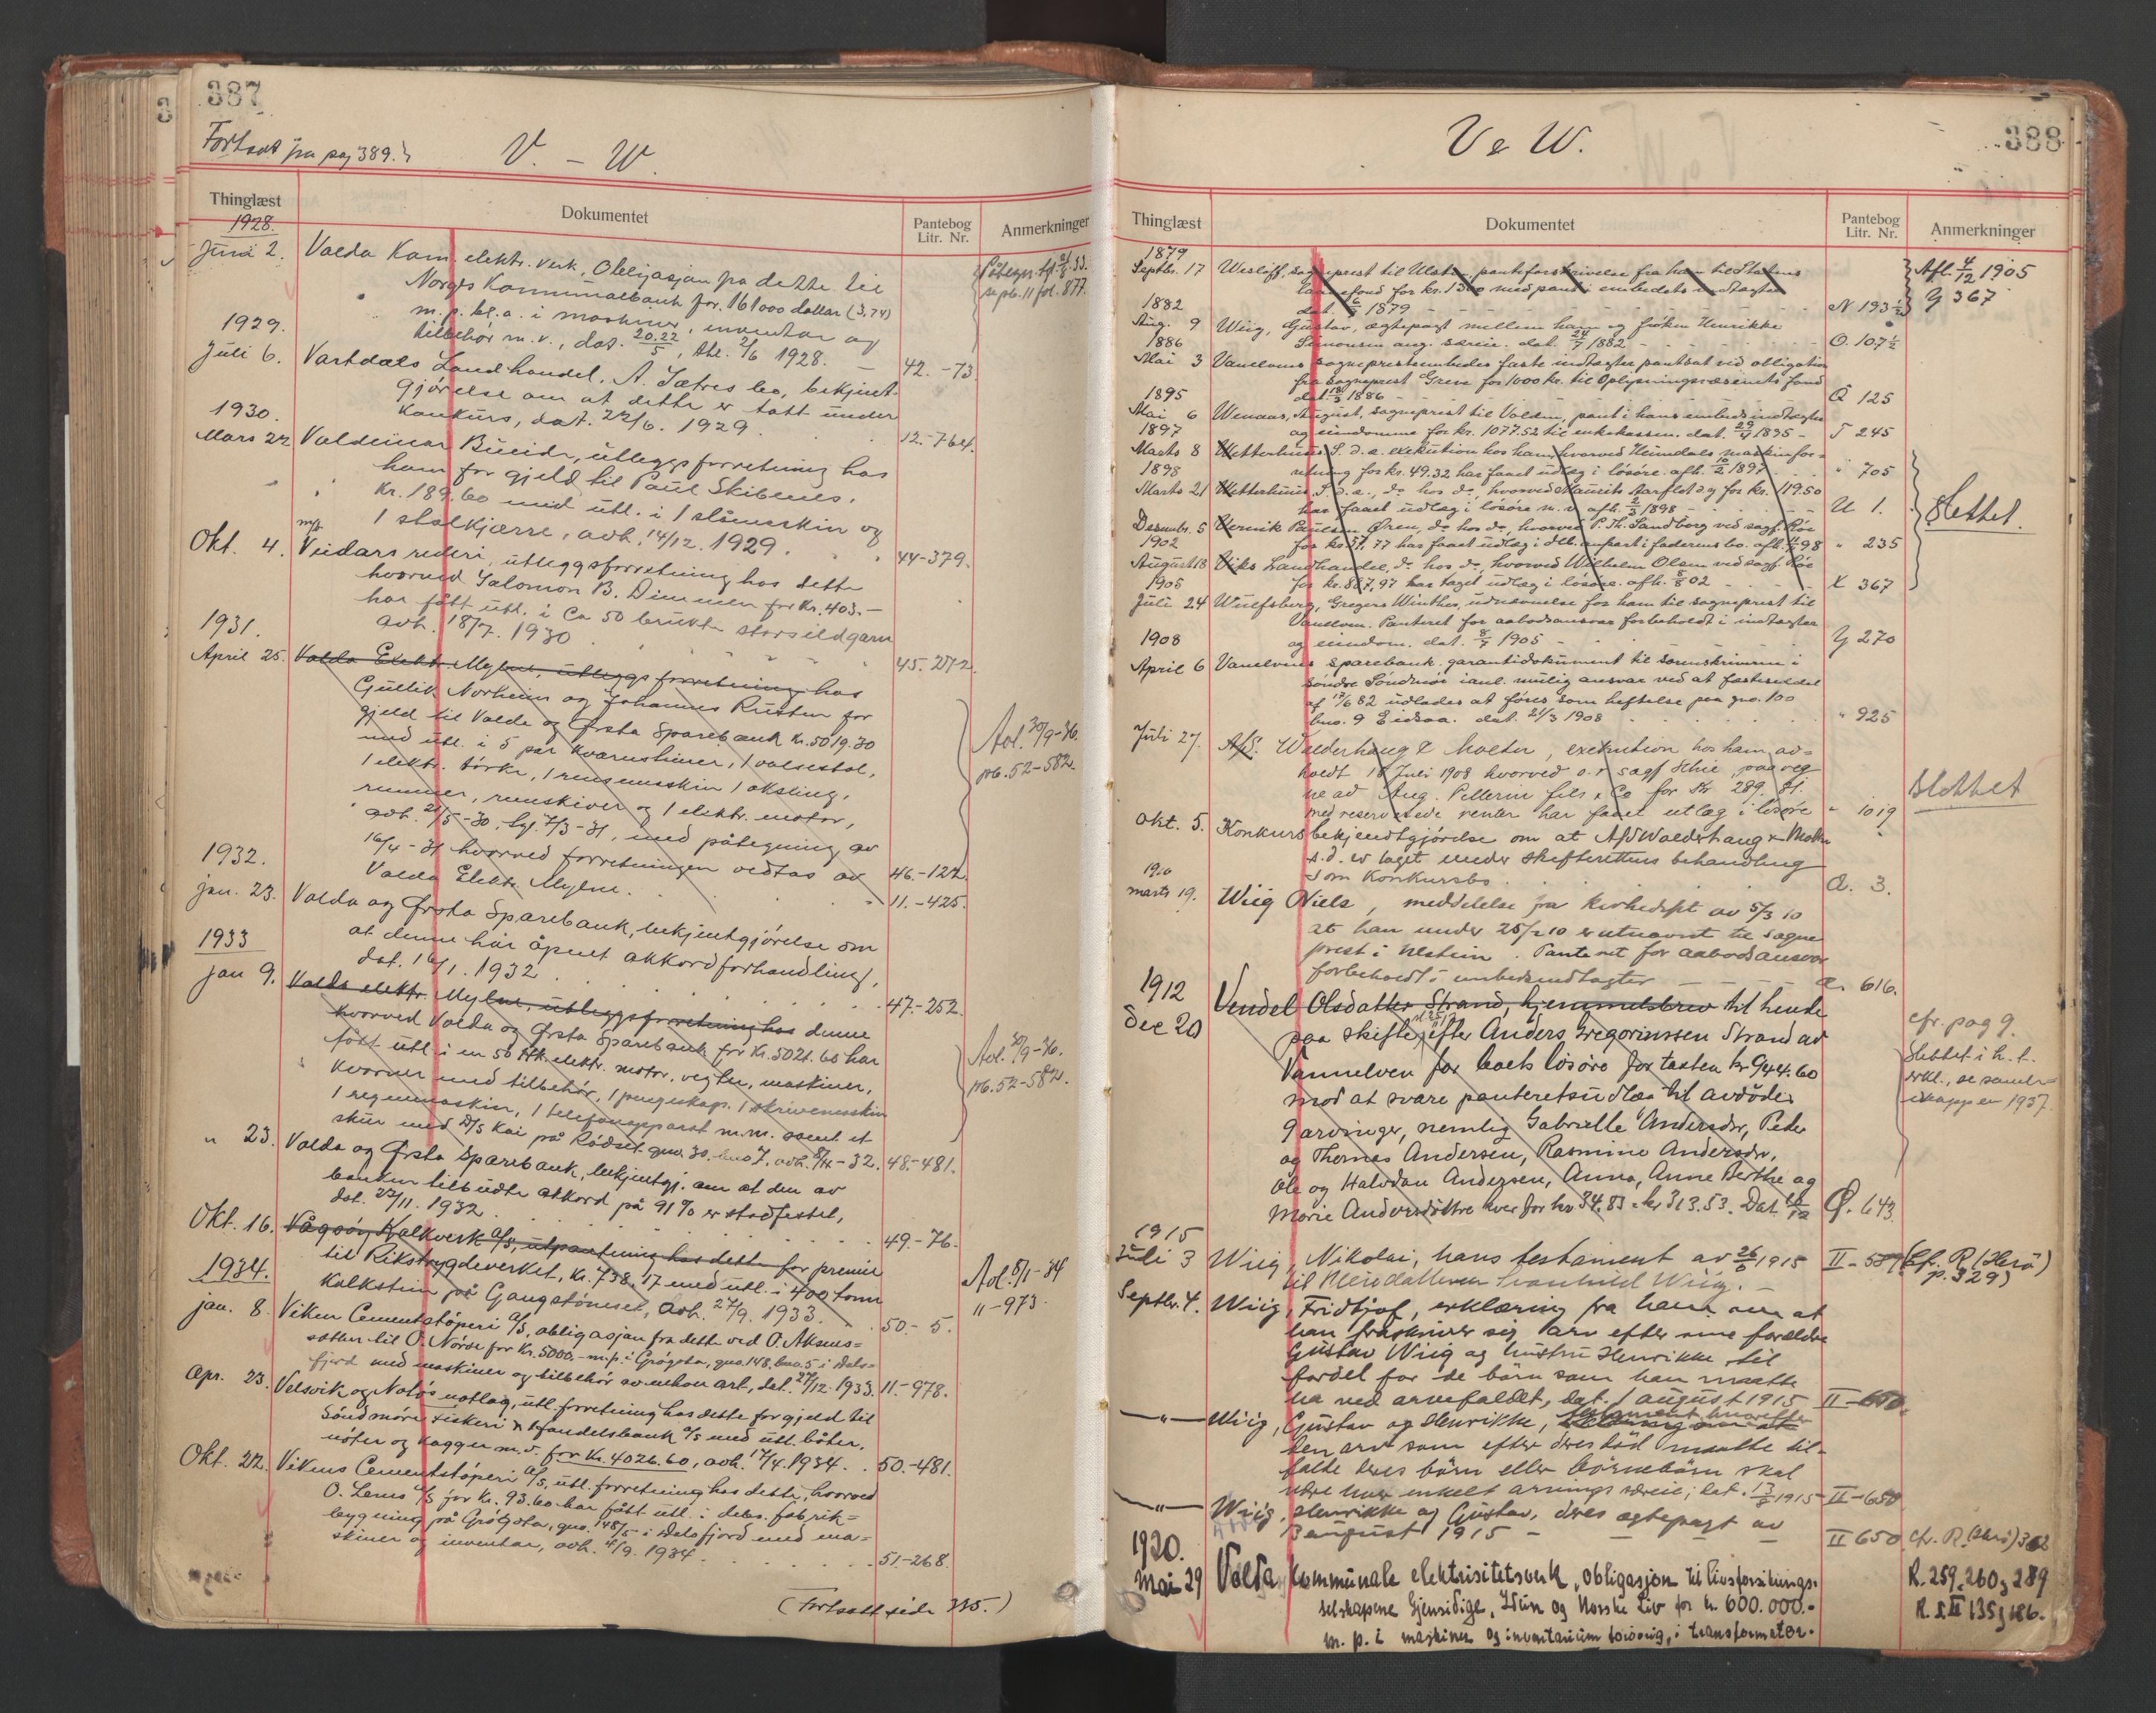 387
Fortsat fra pag 389.
V. - W.
Thinglæst
Dokumentet
Pantebog Litr. Nr.
Anmerkninger
1928.
Juni 2. Volda Kom. elektr. verk, Obligasjon fra dette til
Norges Kommunalbank for 161000 dollar (3,74)
m. p. bl. a. i maskiner, inventar og
tilbehør m. v., dat. 20.22/5, tle. 2/6 1928. 42.-73.
1929.
Juli 6. Vartdals Landhandel, A. Sætres bo, bekjent-
gjørelse om at dette er tatt under
konkurs, dat. 22/6. 1929. 12.-764.
1930.
Mars 22 Valdemar Bueide, utleggsforretning hos
ham for gjeld til Paul Skibenes.
Kr. 189.60 med utl. i 1 slåmaskin og
1 stolkjærre, avh. 14/12. 1929. 44-379.
Okt. 4. m/k Vidars rederi, utleggsforretning hos dette
hvorved Salomon B. Dimmen for Kr. 403.-
har fått utl. i Ca 50 brukte storsildgarn
avh. 18/7. 1930 45.-272.
1931.
April 25. Volda Elektr. Mylne, utleggsforretning hos
Gullik Norheim og Johannes Rusten for
gjeld til Volda og Ørsta Sparebank Kr. 5019.30
med utl. i 5 par kvernstener, 1 valsestol,
1 elektr. tørke, 1 rensemaskin 1 aksling,
remmer, remskiver og 1 elektr. motor,
avh. 21/5-30, tgl. 7/3-31, med påtegning av
16/4-31 hvorved forretningen vedtas av 46.-122.
Volda Elektr. Mylne. 11.-425.
Avl. 30/9-36.
pb. 52-582.
1932.
jan. 23. Volda og Ørsta Sparebank, bekjentgjørelse om
at denne har åpnet akkordforhandling,
dat. 16/1. 1932. 47-252.
1933
jan 9. Volda elektr. Mylne, utleggsforretning hos denne
hvorved Volda og Ørsta Sparebank for Kr. 5021.60 har
fått utl. i en 50 Hk. elektr. motor, vegter, maskiner,
kverner med tilbehør, 1 pengeskap, 1 skrivemaskin
1 regnemaskin, 1 telefonapparat m.m. samt et
skur med D/S kai på Rødset gno. 30. bno 7. avh. 8/11-32. 48.-481.
Avl. 30/9-36.
pb. 52-582.
" 23. Volda og Ørsta Sparebank, bekjentgj. om at den av
banken tilbudte akkord på 91 % er stadfestet,
dat. 22/11. 1932. 49.-76.
Okt. 16. Vågsøy Kalkverk A/S, utpantning hos dette for premie
til Rikstrygdeverket, Kr. 738.17 med utl. i 400 tonn
kalksten på Gangstøneset, avh. 27/9. 1933. 50.- 5.
Avl. 8/1-34
11-973.
1934.
jan. 8. Viken Cementstøperi A/S, obligasjon fra dette ved O. Aksnes-
sæther til O. Nörve for Kr. 5000.- m.p. i Grøgota, gno. 148, bno. 5 i Dals-
fjord med maskiner og tilbehør av enhver art, dat. 27/12. 1933. 11.-978.
Apr. 23. Velsvik og Notøs notlag, utl. forretning hos dette for gjeld til
Søndmøre Fiskeri & Handelsbank A/S med utl. båter,
nøter og kagger m. v. for Kr. 4026.60, avh. 17/4. 1934. 50.-481.
Okt. 22. Vikens Cementstøperi A/S, utl. forretning hos dette, hvorved
for Kr. 93.60 har fått utl. i dets fabrik-
bygning på Grøgota, gno. 148/5 i Dalsfjord med ma-
skiner og inventar, avh. 4/9. 1934. 51-268.
(Fortsatt side 335.)
388
V & W.
Thinglæst
Dokumentet
Pantebog Litr. Nr.
Anmerkninger
1879
Septbr. 17 Wesløff, sogneprest til Ulsten, pantforskrivelse fra ham til Statens
Laanefond for kr. 1300 med pant i embedets indtægter
dat. 6/9 1879 N 193½
Afl. 4/12 1905
Y 367
1882
Aug. 9 Wiig, Gustav, ægtepagt mellem ham og frøken Henrikke
Simonsen ang. særeie. dat. 24/7 1882 O. 107½
1886
Mai 3 Vanelvens sogneprestembedes faste indtægter pantsat ved obligation
fra sogneprest Greve for 1000 kr. til Oplysningsvæsenets fond
1886 Q 125
1895
Mai 6 Wenaas, August, sogneprest til Volden, pant i hans embedsindtægter
og eiendomme for kr. 1077.52 til enkekassen. dat. 29/4 1895 - T 245
1897
Marts 8 Wetterhuus S. d. a. exekution hos ham, hvorved Heimdals maskinfor-
retning for kr. 49.32 har faaet udlæg i løsøre. afh. 10/2 1897 " 705
1898
Marts 21 Wetterhuus, S. d. a., do hos do, hvorved Maurits Aarflot d.y for kr. 119.50
har faaet udlæg i løsøre m. v. afh. 2/3 1898 U 1.
Desembr. 5 Vernik Paulsen Øren, do hos do, hvorved P. Th. Sandborg ved sagf. Röe
for kr. 57.77 har faaet udlæg i deb. anpart i faderens bo. afh. 98 " 235
1902
August 18 Viks Landhandel, do hos do, hvorved Wilhelm Olsen ved sagf. Röe
for kr. 887,97 har taget udlæg i løsøre. afh. 5/8 02 X 367
Slettet.
1905
Juli 24 Wulfsberg, Gregers Winther, udnævnelse for ham til sogneprest til
Vanelven. Panteret for aabodsansvar forbeholdt i indtægter
og eiendom. dat. 8/7 1905 Y 270
1908
April 6 Vanelvens sparebank. garantidokument til sorenskriveren i
søndre Søndmør ianl. mulig ansvar ved at fæsteseddel
af 17/6 82 udlades at føres som heftelse paa gno. 100
bno. 9 Eidsaa. dat. 21/3 1908 " 925
Juli 27. A/S. Walderhaug & Molter, exekution hos ham, av-
holdt 18 Juli 1908 hvorved o.r sagf. Schie, paa veg-
ne av Aug. Pellerin fils & Co for Kr 289.81.
med reserverede renter har faaet utlæg i løsøre " 1019
Slettet
Okt. 5. Konkursbekjendtgjørelse om at A/S Walderhaug & Molter
s.d. er taget under skifterettens behandling
som konkursbo. Æ. 3.
1910
marts 19. Wiig Niels, meddelelse fra kirkedept av 5/3 10
at han under 25/2 10 er utnævnt til sogne
prest i Ulstein. Panteret for aabodsansvar
forbeholdt i embedsindtægter Æ. 616.
1912
Dec 20 Vendel Olsdatter Strand, hjemmelsbrev til hende
paa skifte efter Anders Gregoriussen Strand av
Vannelven for boets løsøre for taxten kr 944.60
mod at svare panteretsudlæg til avdødes
9 arvinger, nemlig Gabrielle Andersdr, Peder
og Thomas Andersen, Rasmine Andersdr,
Ole og Halvdan Andersen, Anna, Anne Berthe og
Marie Andersdöttre hver for kr 34.83 = kr 313.53. Dat. Ø. 643
cfr. pag 9.
Slettet i h. t.
erkl., se samle-
mappen 1937.
1915
Juli 3 Wiig, Nikolai, hans testament av 26/6 1915 II - 589
til Pleiedatteren Svanhild Wiig.
(Cfr. R. (Herø)
p. 329)
Septbr. 4. Wiig, Fridtjof, erklæring fra ham om at
han fraskriver sig arv efter sine forældre
Gustav Wiig og hustru Henrikke til
fordel for de børn som han maatte
ha ved arvefaldet, dat. 1 august 1915 II - 650.
— " — Wiig, Gustav og Henrikke, testament hvorefter
den arv som efter deres død maatte til-
falde deres børn eller børnebørn skal
være hver enkelt arvings særeie, dat. 13/8 1915 - II - 650
— " — Wiig, Henrikke og Gustav, deres ægtepagt av
13 august 1915 II 650. cfr. R. (Herø) 362
1920.
Mai 29 Volda kommunale elektrisitetsverk, obligasjon til livsforsikrings-
selskapene Gjensidige, Idun og Norske Liv for kr. 600.000.-
m. p. i maskiner og inventarium forøvrig, i transformator-
R. 259, 260, 289
R. S. II 135, 186.